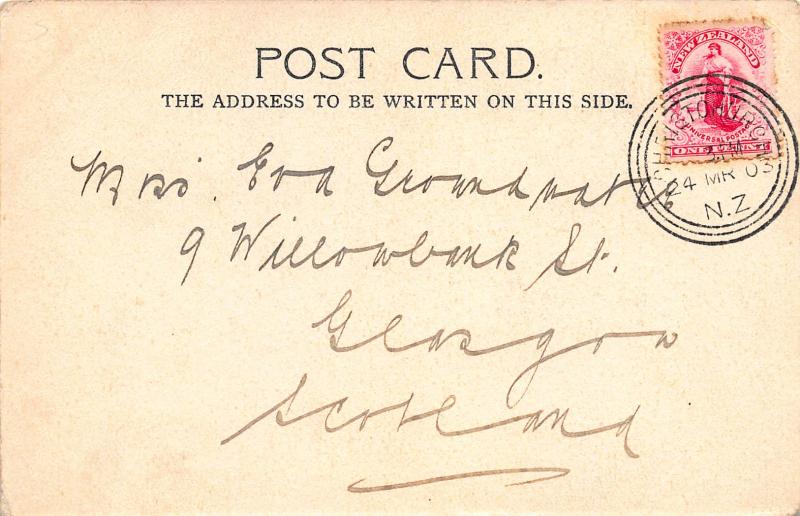 POST CARD.
THE ADDRESS TO BE WRITTEN ON THIS SIDE.
NEW ZEALAND
UNIVERSAL POSTAGE
ONE PENNY
CHRISTCHURCH
24 MR 03
N.Z
Miss. Eva Groundwater
9 Willowbank St.
Glasgow
Scotland